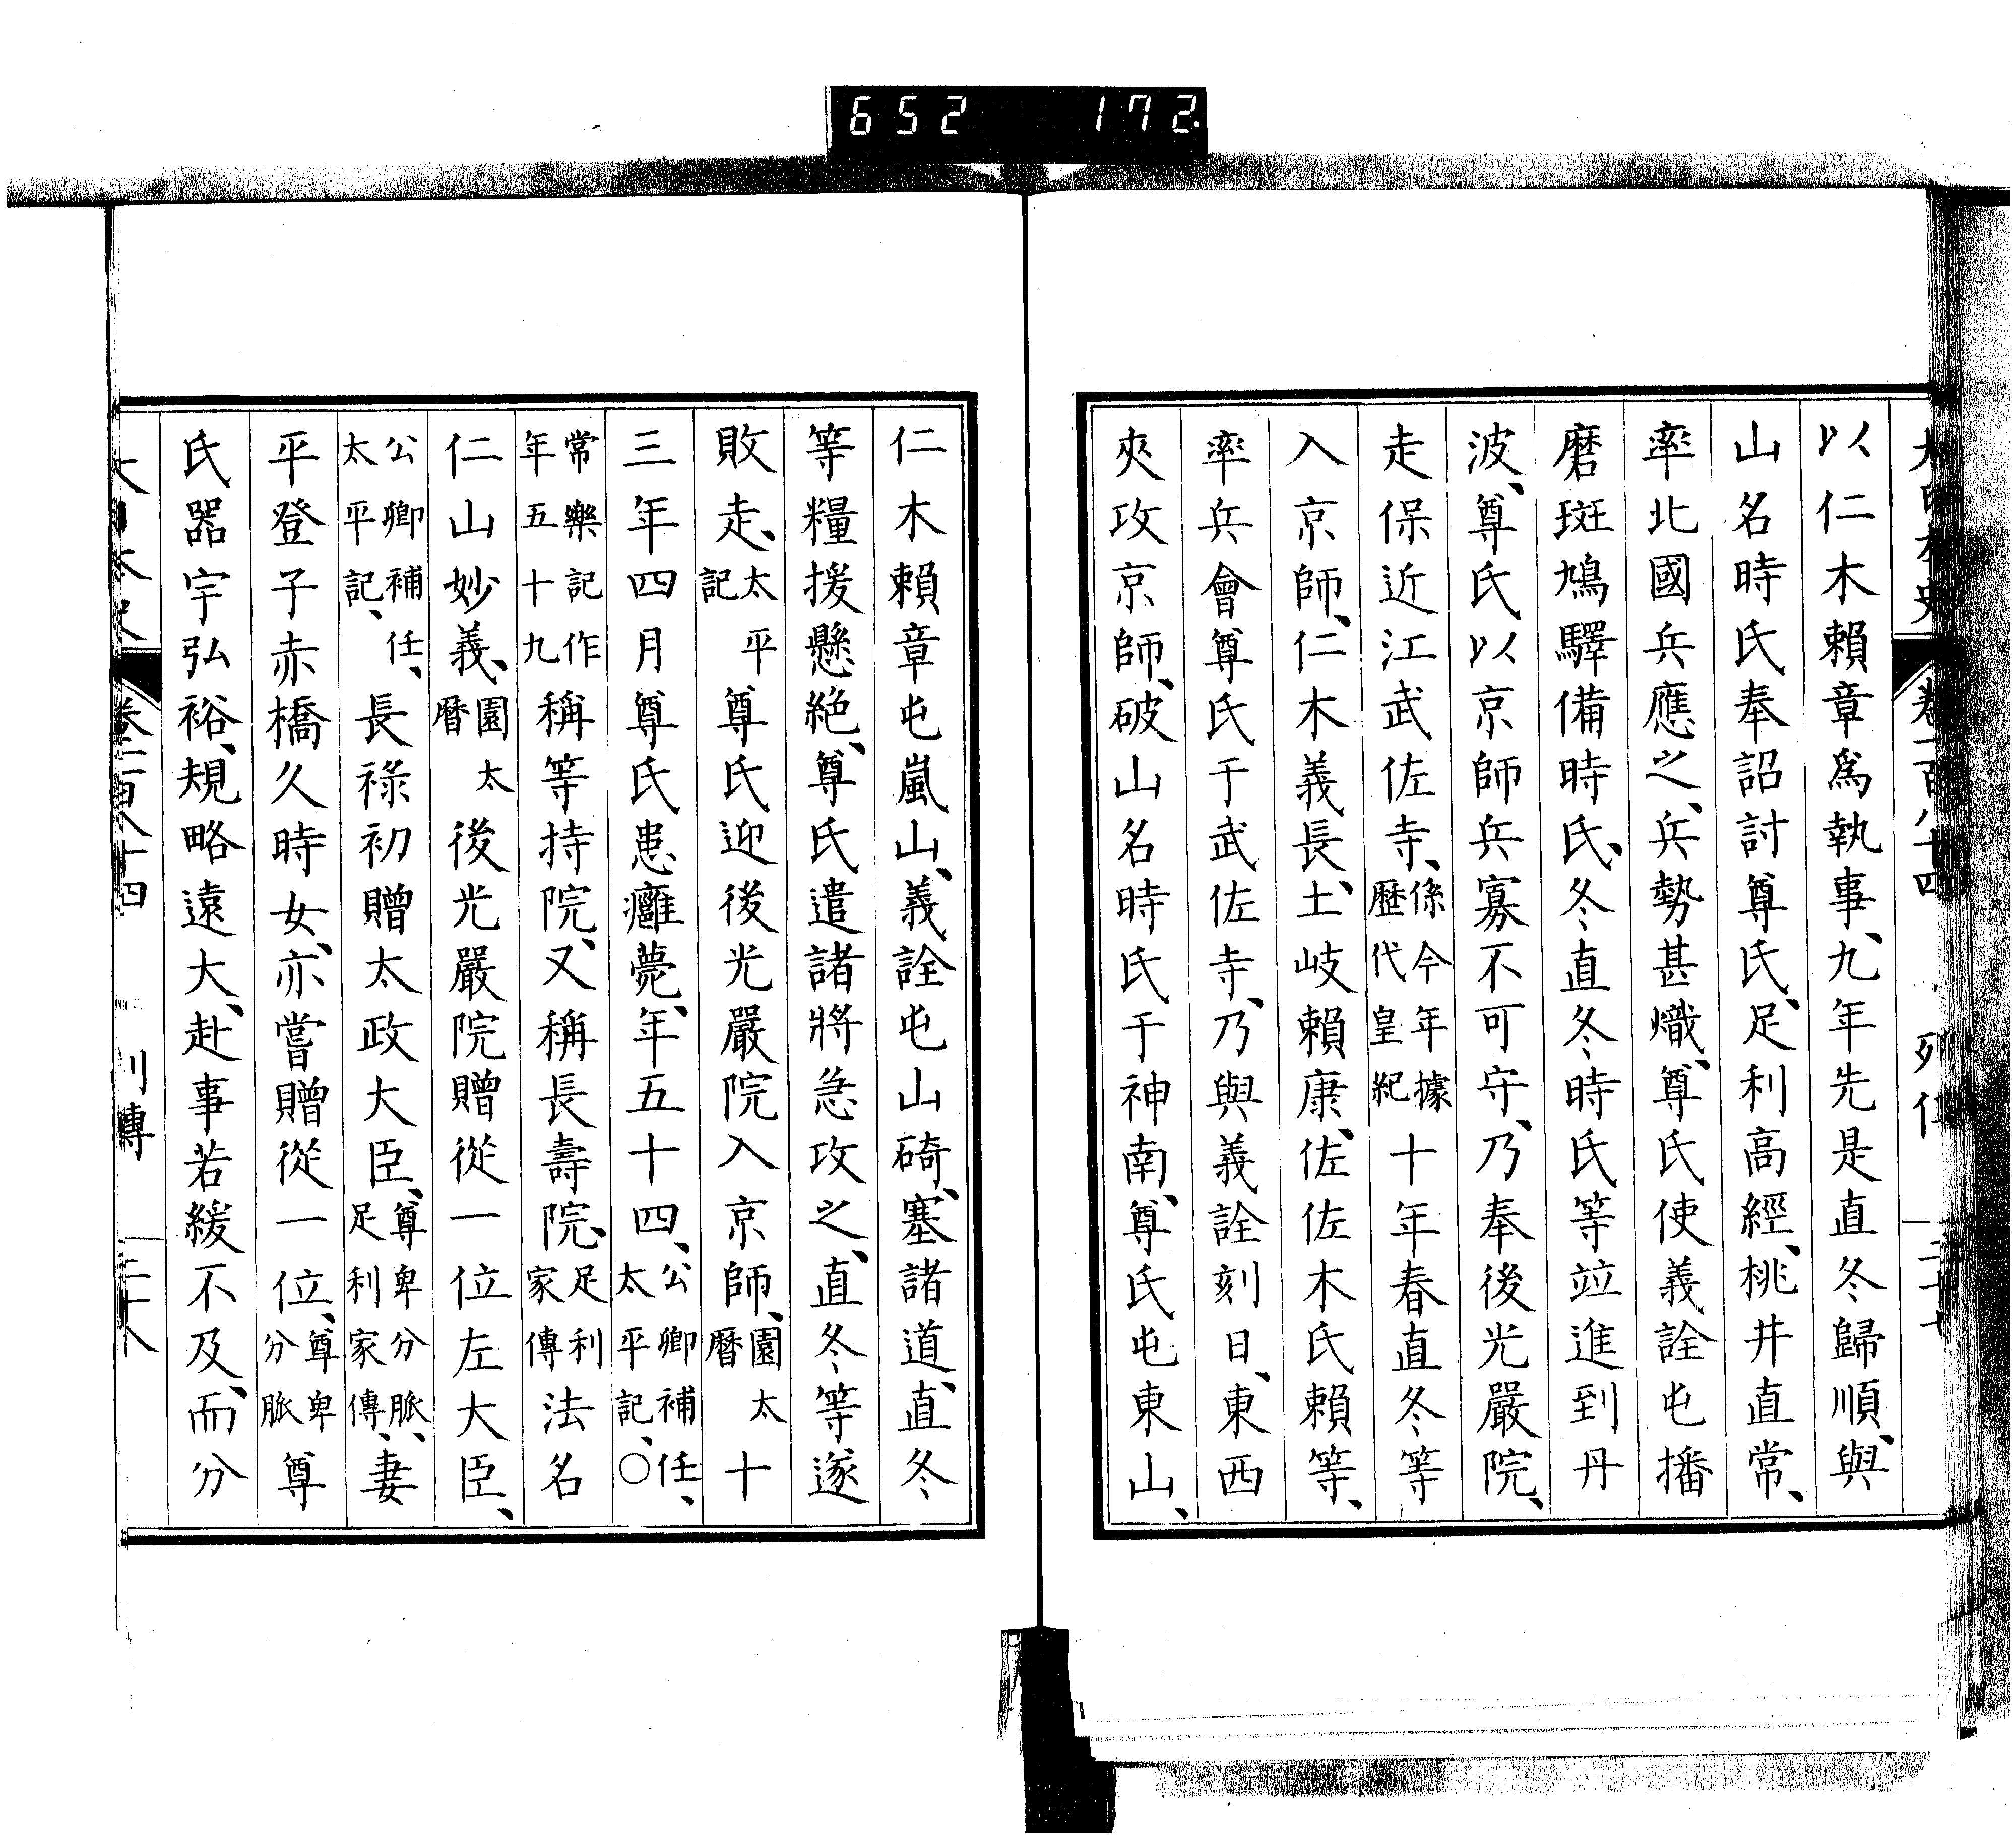 652 172.
大日本史 卷一百八十四 列傳
以仁木賴章爲執事、九年先是直冬歸順、與
山名時氏奉詔討尊氏、足利高經、桃井直常、
率北國兵應之、兵勢甚熾、尊氏使義詮屯播
磨斑鳩驛備時氏、冬直冬時氏等竝進到丹
波、尊氏以京師兵寡不可守、乃奉後光嚴院、
走保近江武佐寺、係今年據歷代皇紀十年春直冬等
入京師、仁木義長、土岐賴康、佐佐木氏賴等、
率兵會尊氏于武佐寺、乃與義詮刻日、東西
夾攻京師、破山名時氏于神南、尊氏屯東山、
仁木賴章屯嵐山、義詮屯山碕、塞諸道、直冬
等糧援懸絕、尊氏遣諸將急攻之、直冬等遂
敗走、太平記尊氏迎後光嚴院入京師、園太曆十
三年四月尊氏患癰薨、年五十四、公卿補任、太平記、○
常樂記作年五十九稱等持院、又稱長壽院、足利家傳法名
仁山妙義、園太曆後光嚴院贈從一位左大臣、
公卿補任、太平記、長祿初贈太政大臣、尊卑分脈、足利家傳、妻
平登子赤橋久時女、亦嘗贈從一位、尊卑分脈尊
氏器宇弘裕、規略遠大、赴事若緩不及、而分
大日本史 卷一百八十四 列傳 二十八